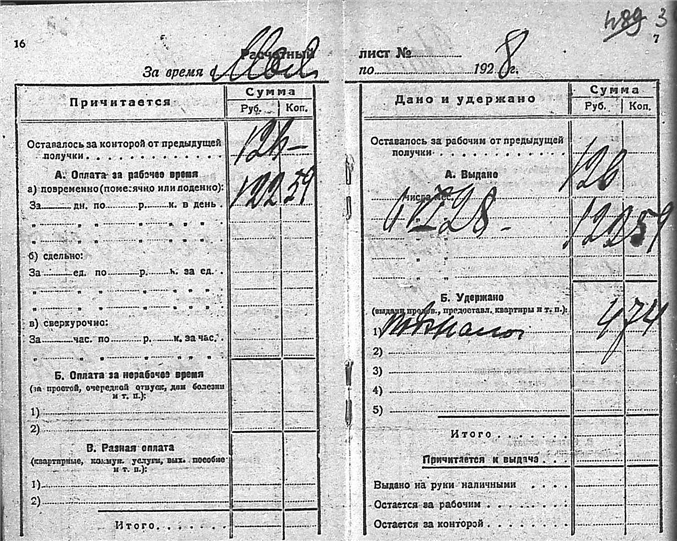 16
489 3
7
Расчетный
За время с Май
Причитается
Сумма
Руб. Коп.
Оставалось за конторой от предыдущей
получки
А. Оплата за рабочее время
122 59
а) повременно (помесячно или поденно):
За ...... дн. по ...... р. ...... к. в день
б) сдельно:
За ...... ед. по ...... р. ...... к. за ед.
в) сверхурочно:
За ...... час. по ...... р. ...... к. за час.
Б. Оплата за нерабочее время
(за простой, очередной отпуск, дни болезни
и т. п.):
1)
2)
В. Разная оплата
(квартирные, коммун. услуги, вых. пособие
и т. п.):
1)
2)
Итого
лист №
по 1928 г.
Дано и удержано
Сумма
Руб. Коп.
Оставалось за рабочим от предыдущей
получки
А. Выдано
Числа мес.
28 122 59
Б. Удержано
(выдачи продов., предоставл. квартиры и т. п.):
1) 4 74
2)
3)
4)
5)
Итого
Причитается и выдача
Выдано на руки наличными
Остается за рабочим
Остается за конторой